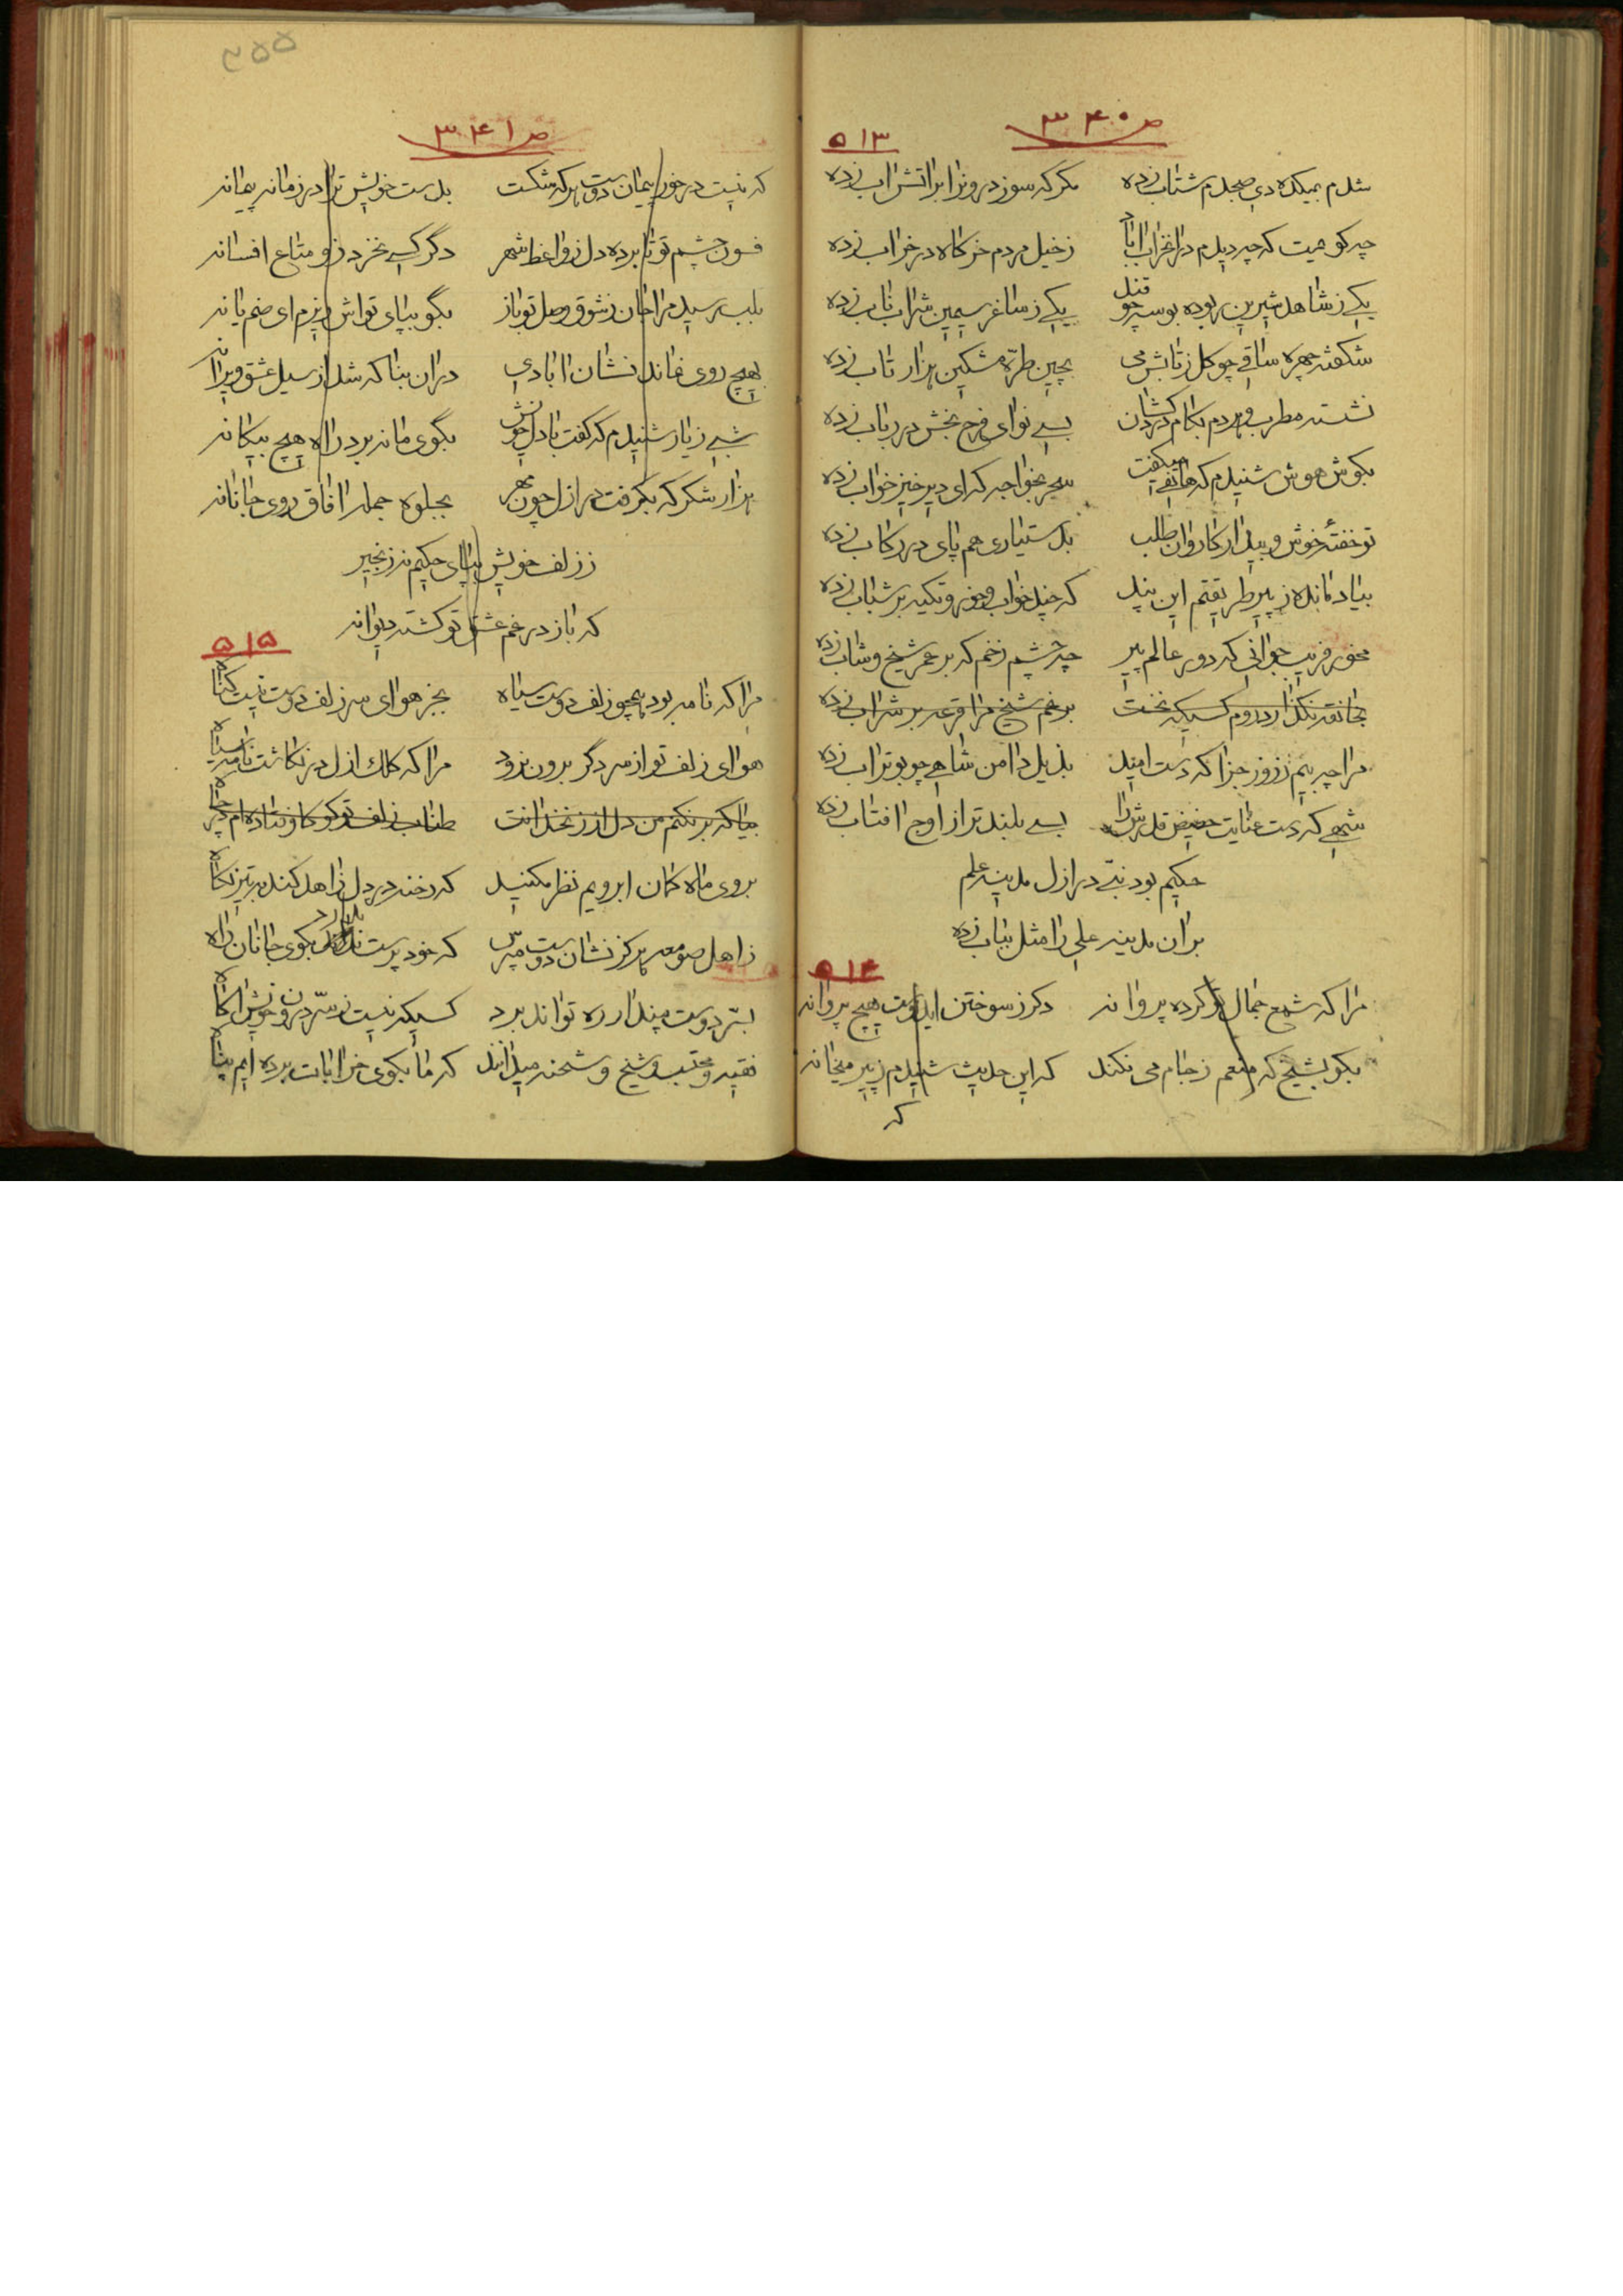 ص ۳۴۰
۵۱۳
شدم بمیکده دی صبحدم شتاب زده مگر که سوز درونرا بر اتش اب زده
چه گویمت که چه دیدم در ان خراب اباد ز خیل مردم خرگاه در خراب زده
یکی ز شاهد شیرین ربوده بوسه چو قند یکی ز ساغر سیمین شراب ناب زده
شکفته چهره ساقی چو گل ز تابش می بچین طره مشکین هزار تاب زده
نشسته مطرب و هردم بکام دردکشان بسی نوای فرح بخش در رباب زده
بگوش هوش شنیدم که هاتفی میگفت سحر بخواجه که ای دیر خیز خواب زده
تو خفتهٔ خوش و بیدار کاروان طلب بدستیاری هم پای در رکاب زده
بیاد مانده ز پیر طریقتم این پند که چند خواب و خور و تکیه بر شباب زده
مخور فریب جوانی که دور عالم پیر چه چشم زخم که بر عمر شیخ و شاب زده
بخانقه نگذارد روم کسیکه نخست برغم شیخ مرا قرعه بر شراب زده
مرا چه بیم ز روز جزا که دست امید بذیل دامن شاهی چو بوتراب زده
شهی که دست عنایت حضیض قدرش را بسی بلندتر از اوج افتاب زده
حکیم بود نبی در ازل مدینه علم
بر ان مدینه علی را مثل بباب زده
۵۱۴
مرا که شمع جمال تو کرده پروانه دگر ز سوختن ایدوست هیچ پروانه
بگو بشیخ که منعم ز جام می نکند که این حدیث شنیدم ز پیر میخانه
که
۳۵۵
ص ۳۴۱
که نیست در خور پیمان دوست هر که شکست بدست خویش ترا در زمانه پیمانه
فسون چشم تو تا برده دل ز واعظ شهر دگر کسی نخرد زو متاع افسانه
بلب رسید مرا جان ز شوق وصل تو باز بگو بپای تواش ریزم ای صنم یا نه
بهیچ روی نماند نشان ابادی در ان بنا که شد از سیل عشق ویرانه
شبی ز یار شنیدم که گفت با دل خویش بکوی ما نه برد راه هیچ بیگانه
هزار شکر که بگرفت در ازل چون مهر بجلوه جمله افاق روی جانانه
ز زلف خویش بپای حکیم نه زنجیر
که باز در غم عشق تو گشته دیوانه
۵۱۵
مرا که نامه بود همچو زلف دوست سیاه بجز هوای سر زلف دوست نیست گناه
هوای زلف تو از سر دگر برون نرود مرا که کلک ازل در نگاشت نامه سیاه
بیا که برنکنم من دل از زنخدانت طناب زلف تو کو کاوفتاده‌ام در چاه
بروی ماه کمان ابرویم نظر مکنید که رخنه در دل زاهد کند به تیر نگاه
ز اهل صومعه هرگز نشان دوست مپرس که خودپرست ندارد بکوی جانان راه
بسر دوست مپندار ره تواند برد کسیکه نیست ز سر درون خویش اگاه
فقیه و محتسب و شیخ و شحنه میدانند که ما بکوی خرابات برده ایم پناه